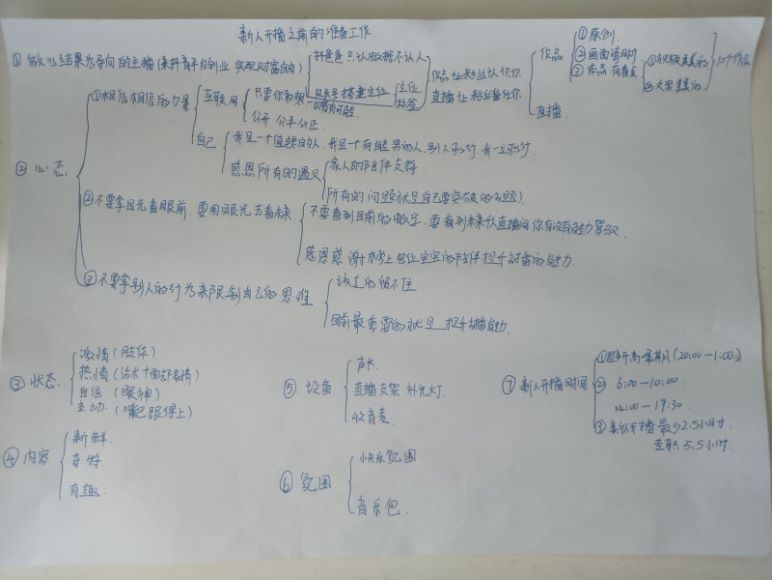 新人开播之前的准备工作
① 做以结果为导向的主播(来抖音平台创业 实现财富自由)
抖音是只认数据不认人
账号搭建定位
定位
标签
作品让粉丝认识你
直播让粉丝
作品
① 原创
② 画面清晰
③ 作品有
直播
② 心态
① 相信相信的力量
互联网
只要你敢想
一切皆有可能
公开 公平 公正
自己
我是一个值钱的人,我是一个有能量的人,别人可以,我一定可以
感恩所有的遇见
家人的陪伴支持
所有的问题就是自己要突破的
② 不要拿目光看眼前,要用眼光去看未来
不要看到目前的,要看到未来你直播间你有没有能力驾驭
感恩感谢 榜上每位宝宝的陪伴提升封播的能力
③ 不要拿别人的行为来限制自己的思维
该走的留不住
目前最重要的就是提升播能力
③ 状态
激情(肢体)
热情(话术+面部表情)
自信(眼神)
互动(嘴巴跟得上)
④ 内容
新鲜
奇特
有趣
⑤ 设备
声卡
直播支架 补光灯
收音麦
⑥ 氛围
快乐氛围
音乐包
⑦ 新人开播时间
① 避开高峰期(20:00-1:00)
② 6:00-10:00
14:00-19:30
③ 新人开播最少2.5小时
5.5小时